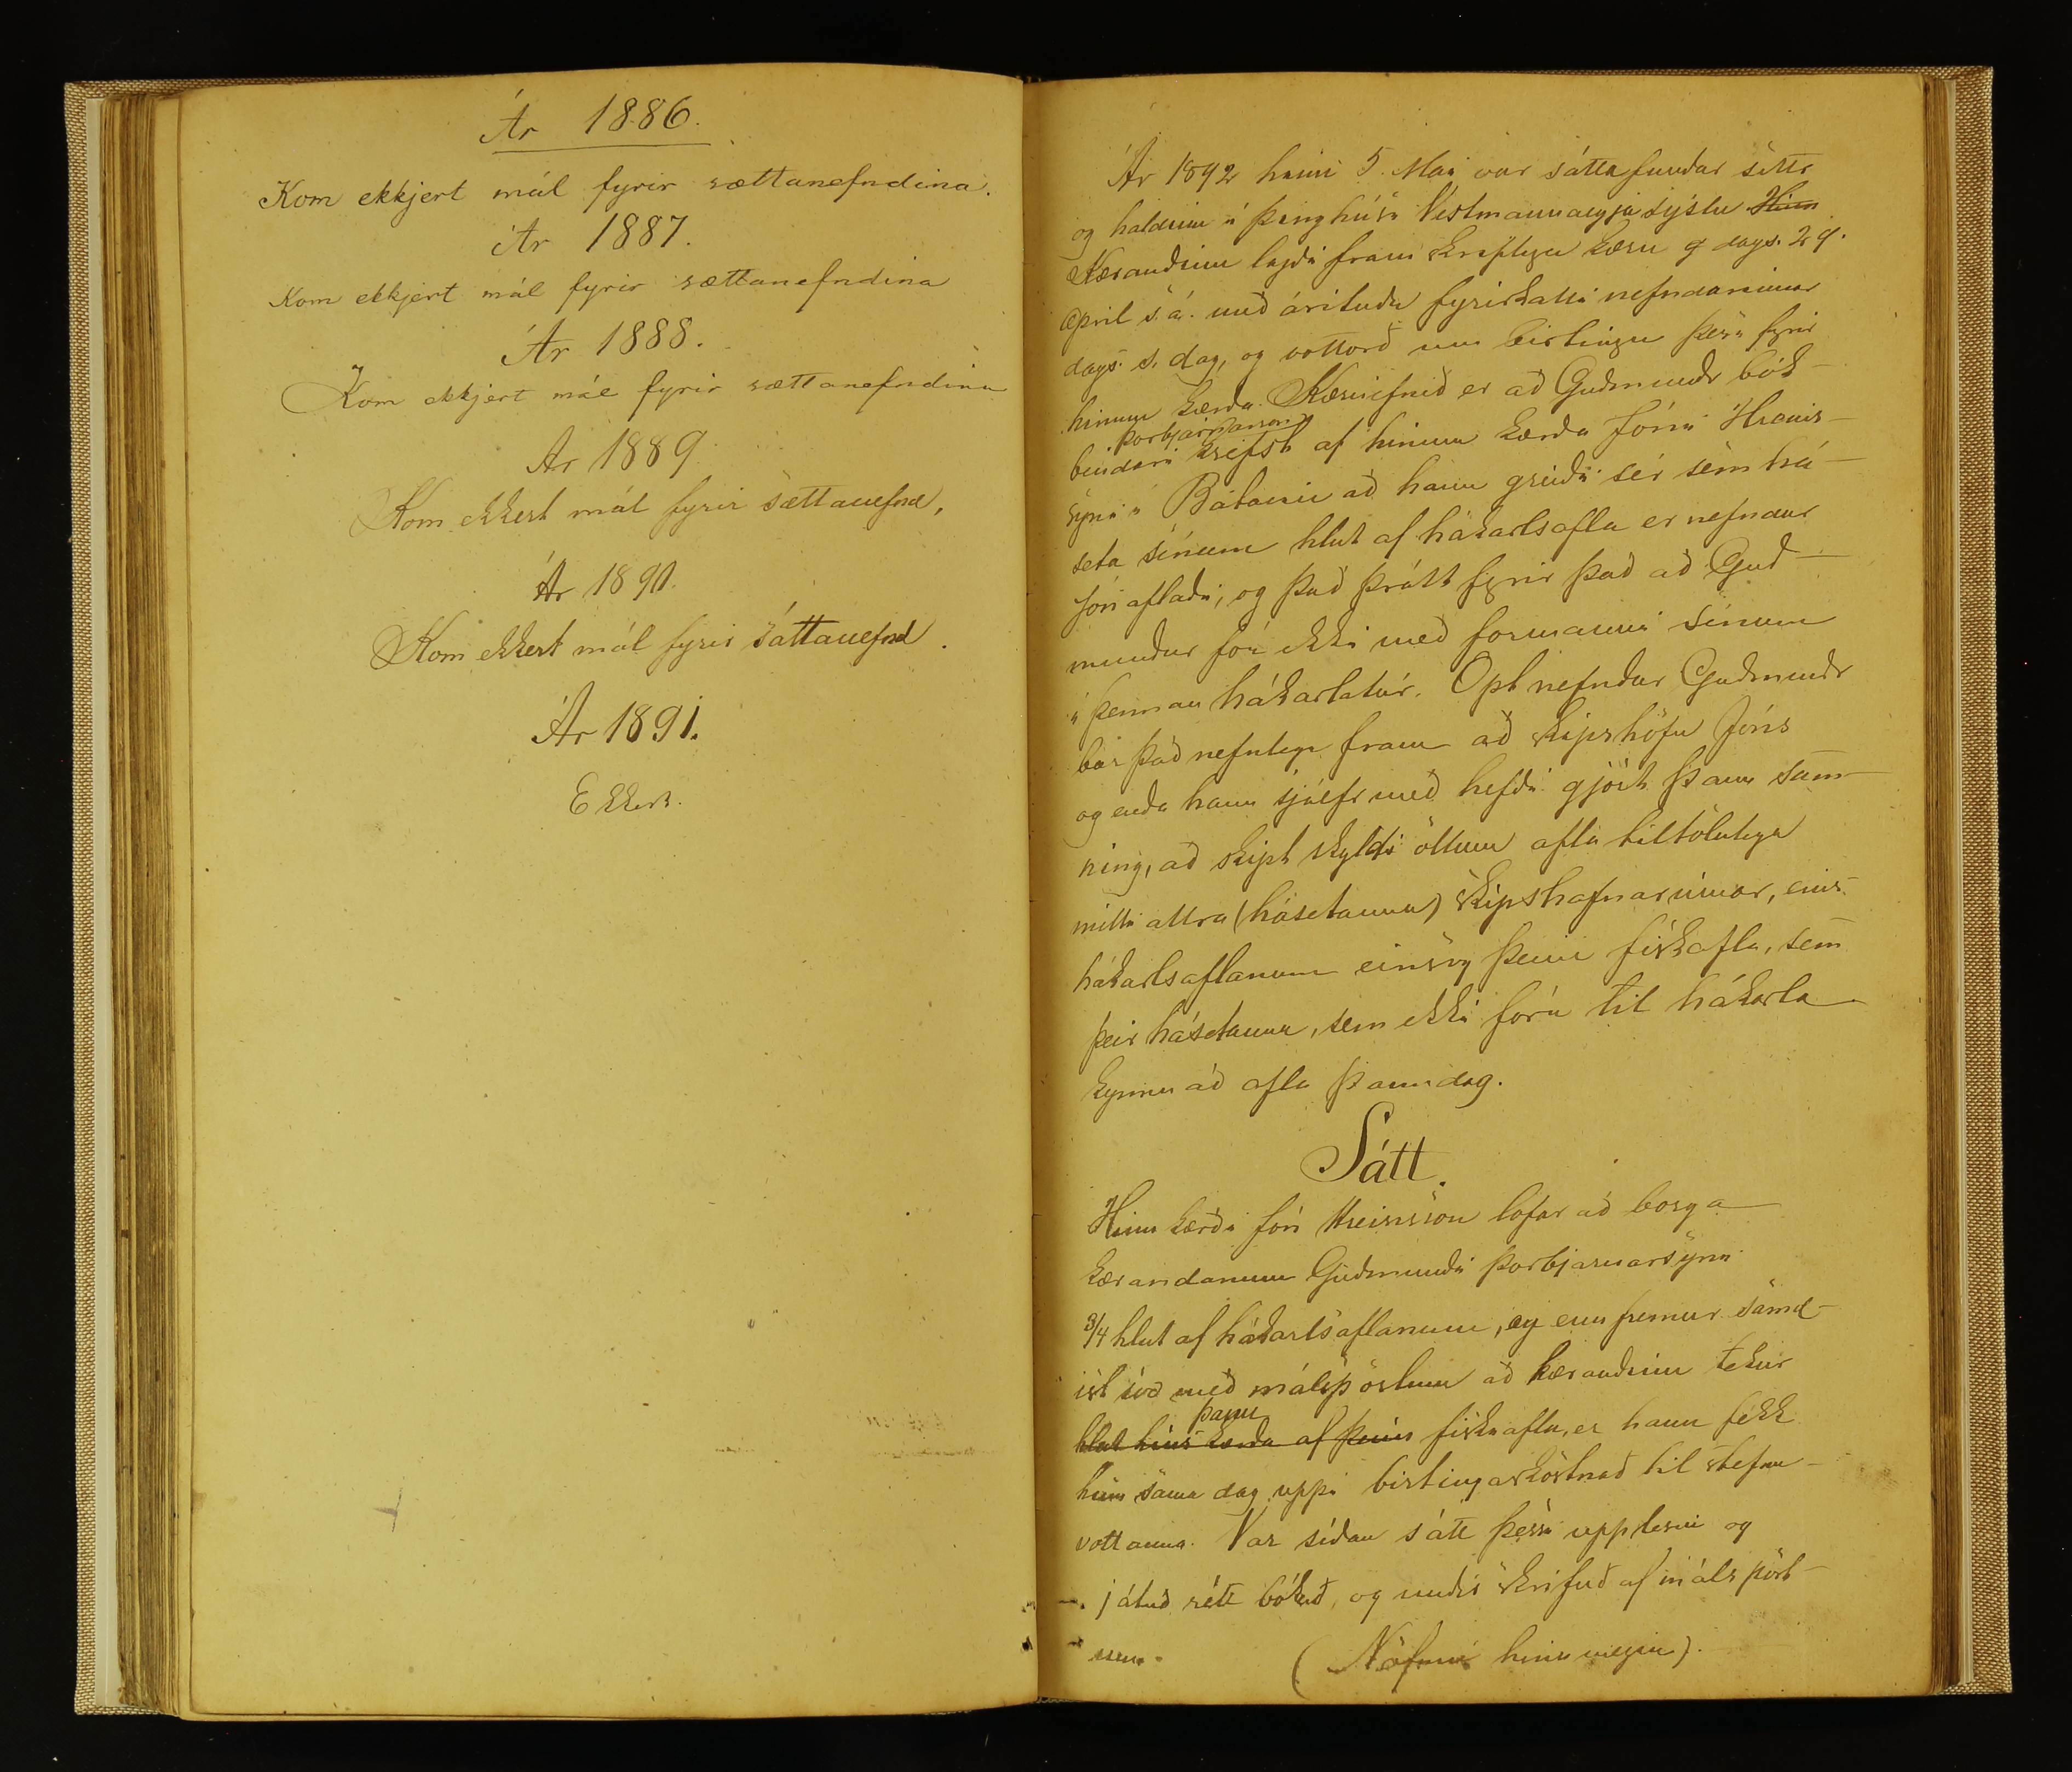 Ár 1886.
Kom ekkjert mál fyrir sættanefndina.
Ár 1887.
Kom ekkjert mál fyrir sættanefndina
Ár 1888.
Kom ekkjert mál fyrir sættanefndina
Ár 1889
Kom ekkert mál fyrir sættanefnd,
Ár 1890.
Kom ekkert mál fyrir sáttanefnd.
Ár 1891.
Ekkert.
Ár 1892 hinn 5. Mai var sáttafundur settr
og haldinn í þinghúsi Vestmannaeyja sýslu Hinn
Kærandinn lagði fram skriflega kæru dags. 29.
April s.á. með árituðu fyrirkalli nefndarinnar
dags. s. dag, og vottorð um birtingu þess fyrir
hinum kærða. Kæruefnið er að Guðmundr bók-
Þorbjarnarson
bindari krefst af hinum kærða Jóni Hreins-
syni í Batavíu að hann greiði sér sem há-
seta sínum hlut af hákarlsafla er nefndur
Jón aflaði, og það þrátt fyrir það að Guð-
mundur fór ekki með formanni sínum
í þennan hákarlatúr. Opt nefndur Guðmundr
bar það nefnilega fram að skipshöfn Jóns
og enda hann sjálfr með hefði gjört þann sam-
ning, að skipt skyldi öllum afla tiltölulega
milli allra (hásetanna) skipshafnarinnar, eins
hákarlsaflanum einsog þeim fiskafla, sem
þeir hásetanna, sem ekki fóru til hákarla
kynnu að afla þann dag.
Sátt.
Hinn kærði Jón Hreinsson lofar að borga
kærandanum Guðmundi Þorbjarnarsyni
3/4 hlut af hákarlsaflanum, og enn fremur samd-
ist svo með málspörtum að kærandinn tekur
þann
hlut hins kærða af þeim fiskafla, er hann fékk
hinn sama dag uppí birtingarkostnað til stefnu-
vottanna. Var síðan sátt þessi upplesin og
játuð rétt bókuð, og undirskrifuð af málspört-
unum. (Nöfnin hinu megin).